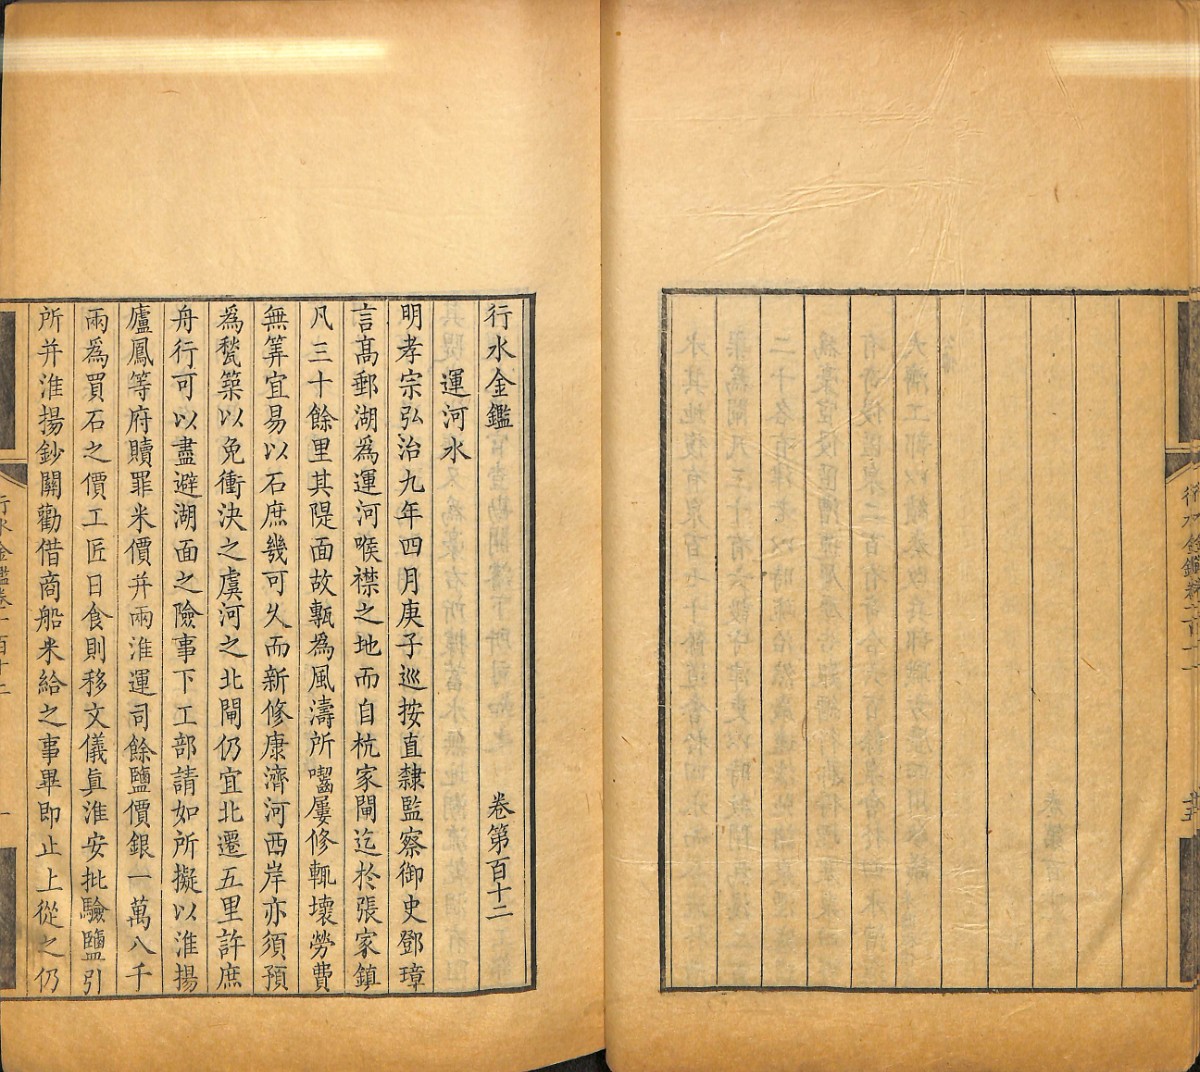 行水金鑑 卷第百十二
運河水
明孝宗弘治九年四月庚子巡按直隸監察御史鄧璋
言高郵湖為運河喉襟之地而自杭家閘迄於張家鎮
凡三十餘里其隄面故甎為風濤所齧屢修輒壞勞費
無筭宜易以石庶幾可久而新修康濟河西岸亦須預
為甃築以免衝決之虞河之北閘仍宜北遷五里許庶
舟行可以盡避湖面之險事下工部請如所擬以淮揚
廬鳳等府贖罪米價并兩淮運司餘鹽價銀一萬八千
兩為買石之價工匠日食則移文儀真淮安批驗鹽引
所并淮揚鈔關勸借商船米給之事畢即止上從之仍
行水金鑑卷一百十二 一